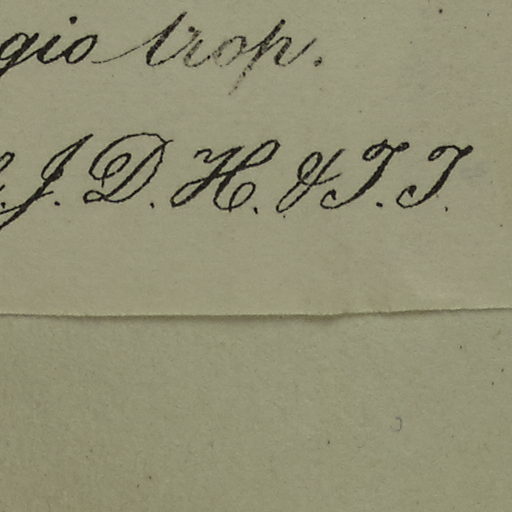 gio trop.
J. D. H. & T. T.